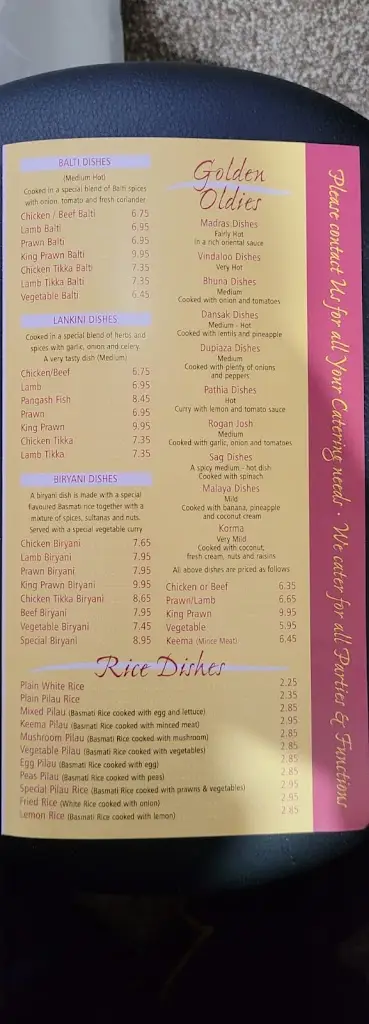 BALTI DISHES
(Medium Hot)
Cooked in a special blend of Balti spices
with onion, tomato and fresh coriander
Chicken / Beef Balti 6.75
Lamb Balti 6.95
Prawn Balti 6.95
King Prawn Balti 9.95
Chicken Tikka Balti 7.35
Lamb Tikka Balti 7.35
Vegetable Balti 6.45
LANKINI DISHES
Cooked in a special blend of herbs and
spices with garlic, onion and celery.
A very tasty dish (Medium)
Chicken/Beef 6.75
Lamb 6.95
Pangash Fish 8.45
Prawn 6.95
King Prawn 9.95
Chicken Tikka 7.35
Lamb Tikka 7.35
BIRYANI DISHES
A biryani dish is made with a special
flavoured Basmati rice together with a
mixture of spices, sultanas and nuts.
Served with a special vegetable curry
Chicken Biryani 7.65
Lamb Biryani 7.95
Prawn Biryani 7.95
King Prawn Biryani 9.95
Chicken Tikka Biryani 8.65
Beef Biryani 7.95
Vegetable Biryani 7.45
Special Biryani 8.95
Golden
Oldies
Madras Dishes
Fairly Hot
in a rich oriental sauce
Vindaloo Dishes
Very Hot
Bhuna Dishes
Medium
Cooked with onion and tomatoes
Dansak Dishes
Medium - Hot
Cooked with lentils and pineapple
Dupiaza Dishes
Medium
Cooked with plenty of onions
and peppers
Pathia Dishes
Hot
Curry with lemon and tomato sauce
Rogan Josh
Medium
Cooked with garlic, onion and tomatoes
Sag Dishes
A spicy medium - hot dish
Cooked with spinach
Malaya Dishes
Mild
Cooked with banana, pineapple
and coconut cream
Korma
Very Mild
Cooked with coconut,
fresh cream, nuts and raisins
All above dishes are priced as follows
Chicken or Beef 6.35
Prawn/Lamb 6.65
King Prawn 9.95
Vegetable 5.95
Keema (Mince Meat) 6.45
Rice Dishes
Plain White Rice 2.25
Plain Pilau Rice 2.35
Mixed Pilau (Basmati Rice cooked with egg and lettuce) 2.85
Keema Pilau (Basmati Rice cooked with minced meat) 2.95
Mushroom Pilau (Basmati Rice cooked with mushroom) 2.85
Vegetable Pilau (Basmati Rice cooked with vegetables) 2.85
Egg Pilau (Basmati Rice cooked with egg) 2.85
Peas Pilau (Basmati Rice cooked with peas) 2.85
Special Pilau Rice (Basmati Rice cooked with prawns & vegetables) 2.95
Fried Rice (White Rice cooked with onion) 2.95
Lemon Rice (Basmati Rice cooked with lemon) 2.85
Please contact Us for all Your Catering needs · We cater for all Parties & Functions